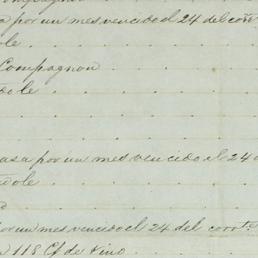 a por un mes vencido el 24 del corrte
dole
Compagnon
dole
casa por un mes vencido el 24 d
dole
por un mes vencido el 24 del corrte
118 Cf de Vino